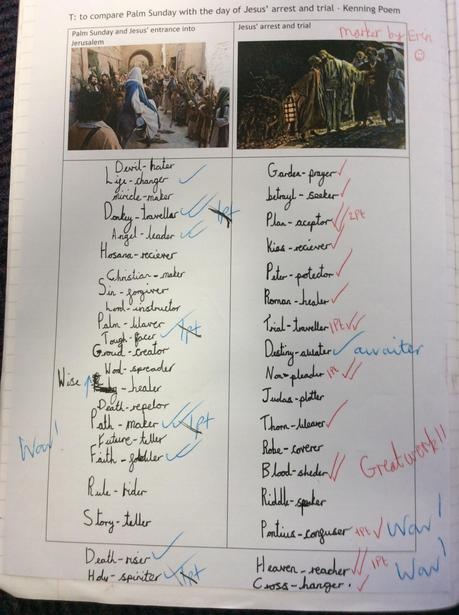 T: to compare Palm Sunday with the day of Jesus' arrest and trial - Kenning Poem
Palm Sunday and Jesus' entrance into
Jerusalem
Devil-hater
Life-changer
Miricle-maker
Donkey-travellar 1pt
Angel-leader
Hosana-reciever
Christian-maker
Sin-forgiver
Lord-instructor
Palm-waver
Tough-facer 1pt
Crowd-creator
Word-spreader
Wise
healer
Death-repelor
Path-maker 1pt
Wow!
Future-teller
Faith-
Rule-rider
Story-teller
Death-riser
Holy-spiriter 1pt
Jesus' arrest and trial
marker by Erin
Garden-prayer
betrayl-seeker
Plan-aceptor 2Pt
Kiss-reciever
Peter-potector
Roman-healer
Trial-traveller 1Pt
Destiny-awater awaiter
Non-pleader 1Pt
Judas-plotter
Thorn-weaver
Robe-coverer
Blood-sheder
Great work!!
Riddle-speker
Pontius-confuser 1Pt Wow!
Heaven-reacher 1Pt Wow!
Cross-hanger.